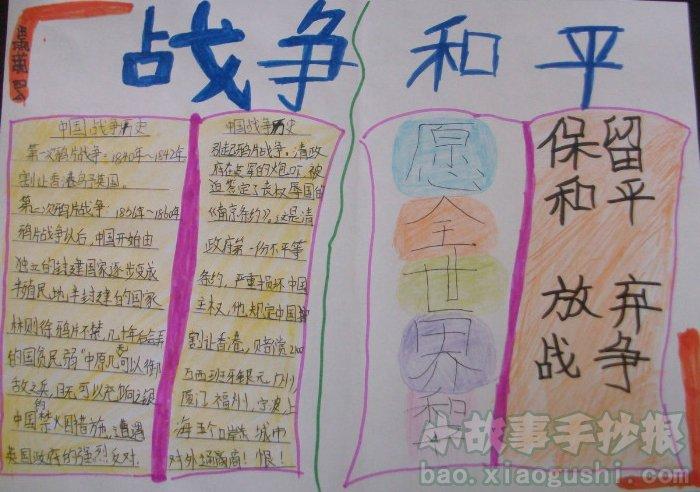 战争
和平
中国战争历史
第一次鸦片战争:1840年~1842年
割让香港岛予英国。
第二次鸦片战争:1856年~1860年
鸦片战争以后,中国开始由
独立的封建国家逐步变成
半殖民地半封建的国家
林则徐鸦片不禁,几十年后
的国贫民弱"中原几可以御
敌之兵,且无可以充饷之银
中国禁火因措施,遭遇
英国政府的强烈反对.
中国战争历史
引起鸦片战争。清政
府在英军的炮口下被
迫签定了丧权辱国的
《南京条约》。这是清
政府第一份不平等
条约,严重损坏中国
主权,他规定中国
割让香港,贝咅赏2100
万西班牙银元.广州,
厦门,福州,宁波,上
海五个口岸城市
对外通商!恨!
愿
全
世
界
和
保留
和平
放弃
战争
小故事手抄报
bao.xiaogushi.com